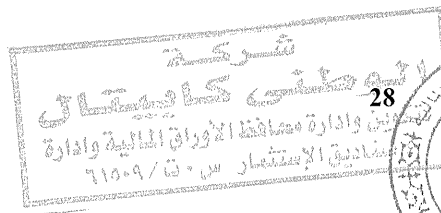 شركة
الوطنى كابيتال
28
وإدارة محافظ الأوراق المالية وإدارة
صناديق الإستثمار س.ت/٦١٥٠٩